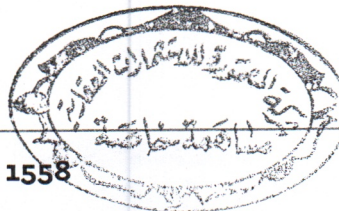 شركة المتميزة للاستثمارات العقارية
مساهمة خاصة
1558